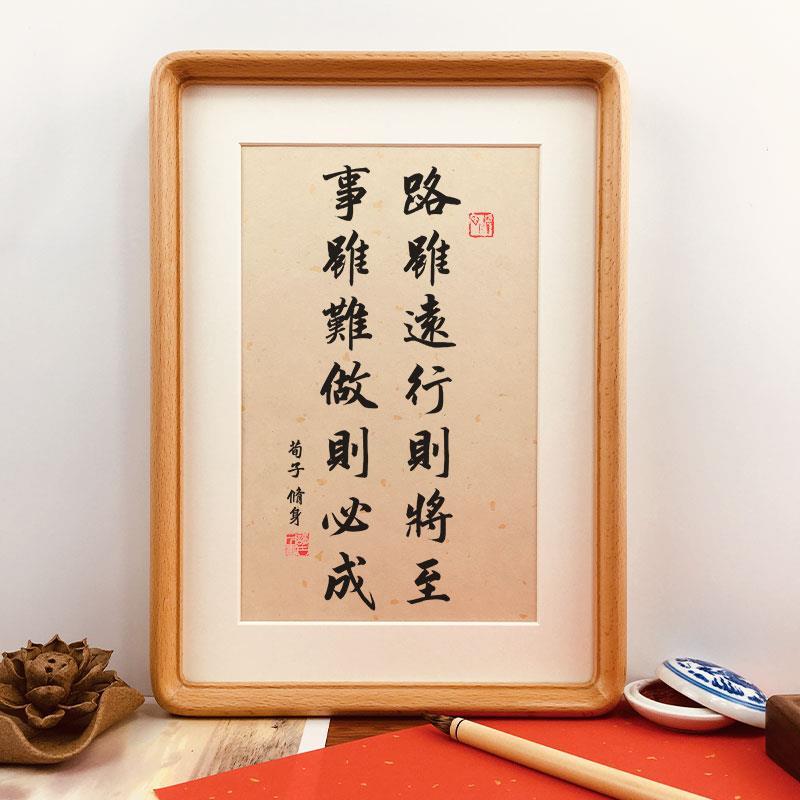 路雖遠行則將至
事雖難做則必成
荀子 脩身